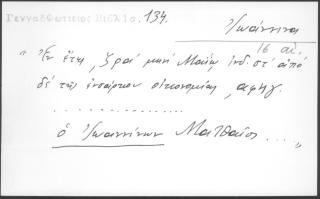 Γενναδ[...] Βιβλιο. 134.
Ἰωάννινα
16 αἰ.
"Ἐν ἔτει, ζραί μηνί Μαΐῳ ἰνδ. στ' ἀπό
δέ τῆς ἐνσάρκου οἰκονομίας, αφηγ.
. . . . . . . . . . . . . .
ὁ Ἰωαννίνων Ματθαῖος . . . . "